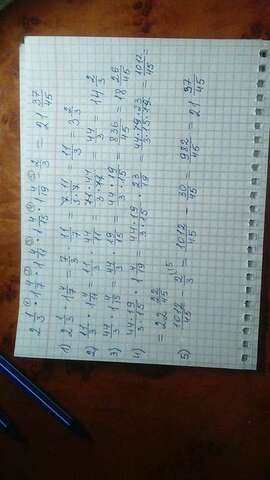 2 1/3 · 1 4/7 · 1 4/11 · 1 4/15 · 1 4/19 - 2/3 = 21 37/45
1) 2 1/3 · 1 4/7 = 7/3 · 11/7 = 7·11/3·7 = 11/3 = 3 2/3
2) 11/3 · 1 4/11 = 11/3 · 44/11 = 11·44/3·11 = 44/3 = 14 2/3
3) 44/3 · 1 4/15 = 44/3 · 19/15 = 44·19/3·15 = 836/45 = 18 26/45
4) 44·19/3·15 · 1 4/19 = 44·19/3·15 · 23/19 = 44·19·23/3·15·19 = 1012/45 =
= 22 22/45
5) 1012/45 - 2/3 \15 = 1012/45 - 30/45 = 982/45 = 21 37/45